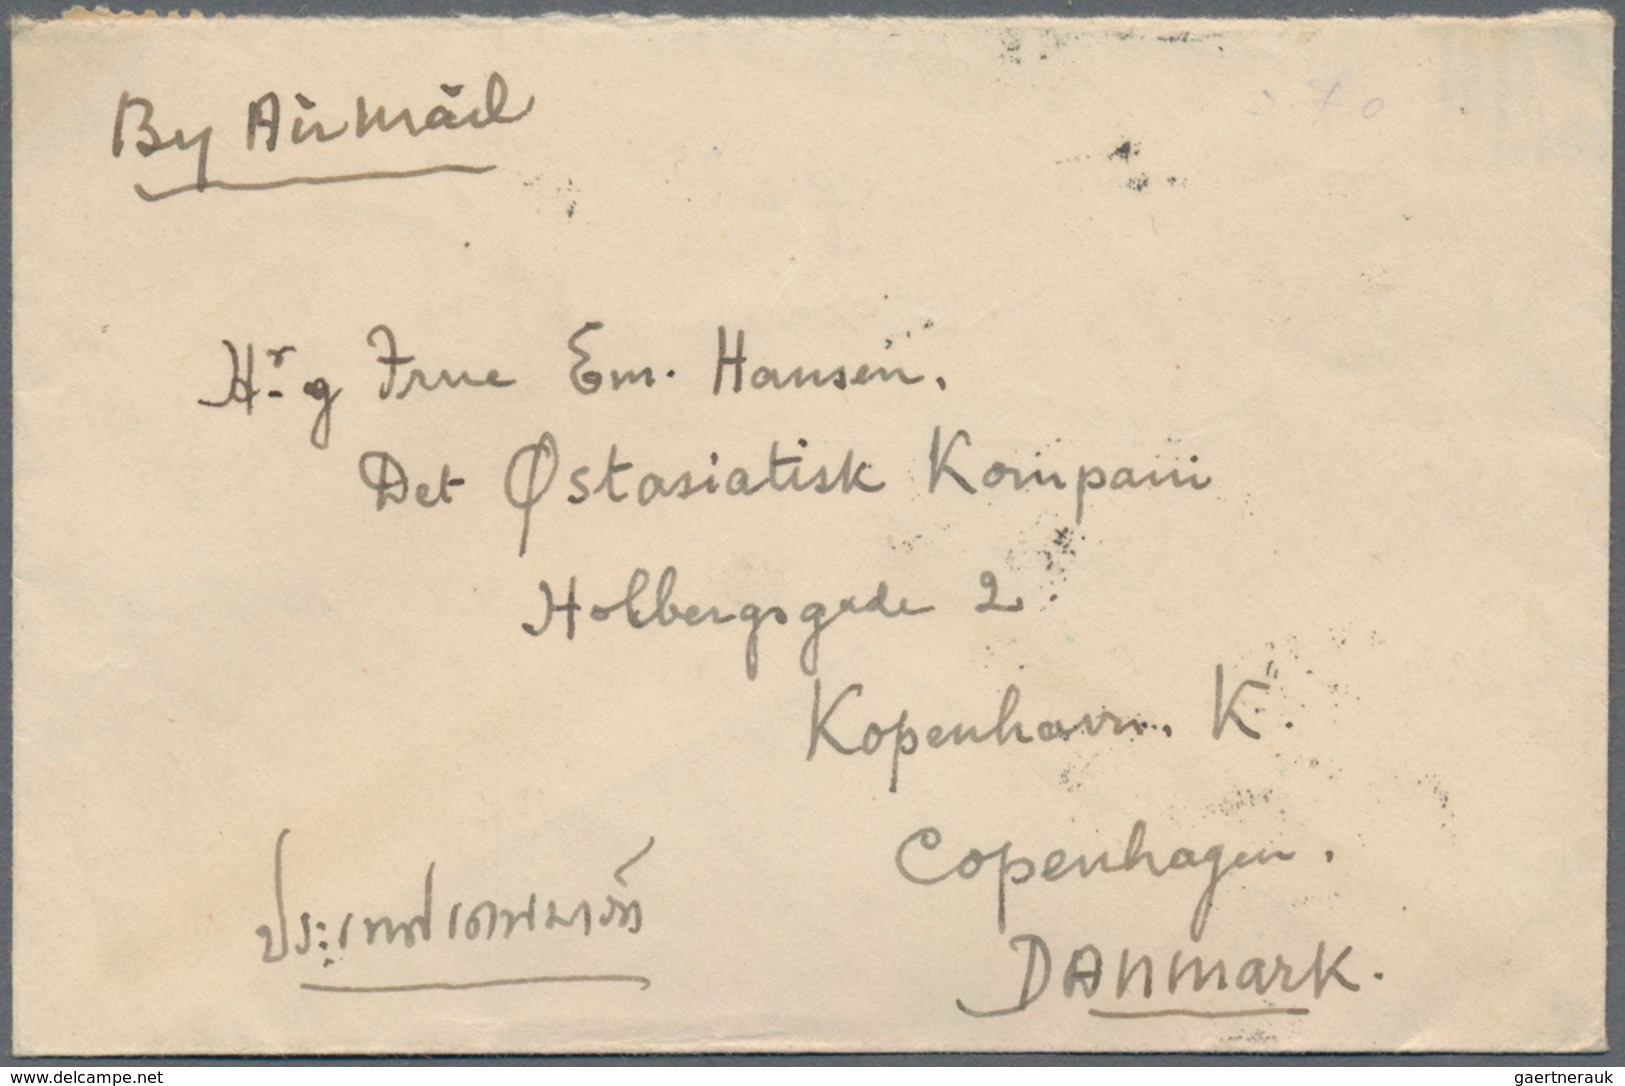 By Airmail
Hr. g Frue Em. Hansen.
Det Østasiatisk Kompani
Holbergsgade 2
Kopenhavn. K.
Copenhagen.
ประเทศเดนมาร์ก
DANMARK.
www.delcampe.net
gaertnerauk